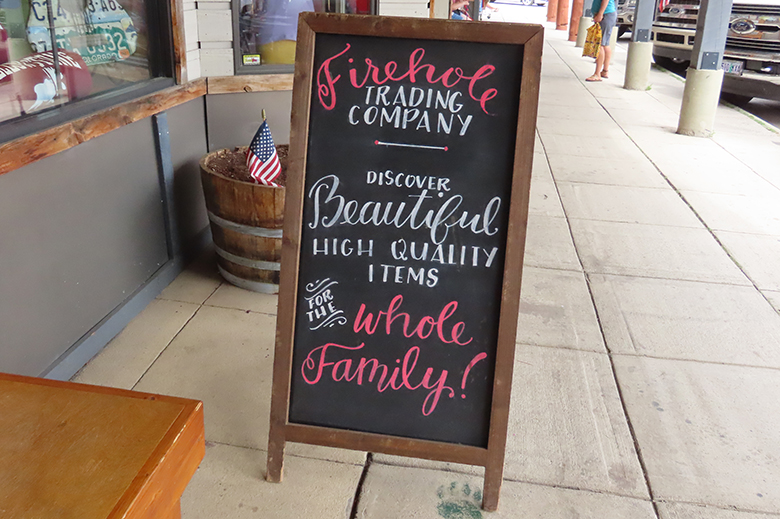 Firehole
TRADING
COMPANY
DISCOVER
Beautiful
HIGH QUALITY
ITEMS
FOR
THE
Whole
Family!